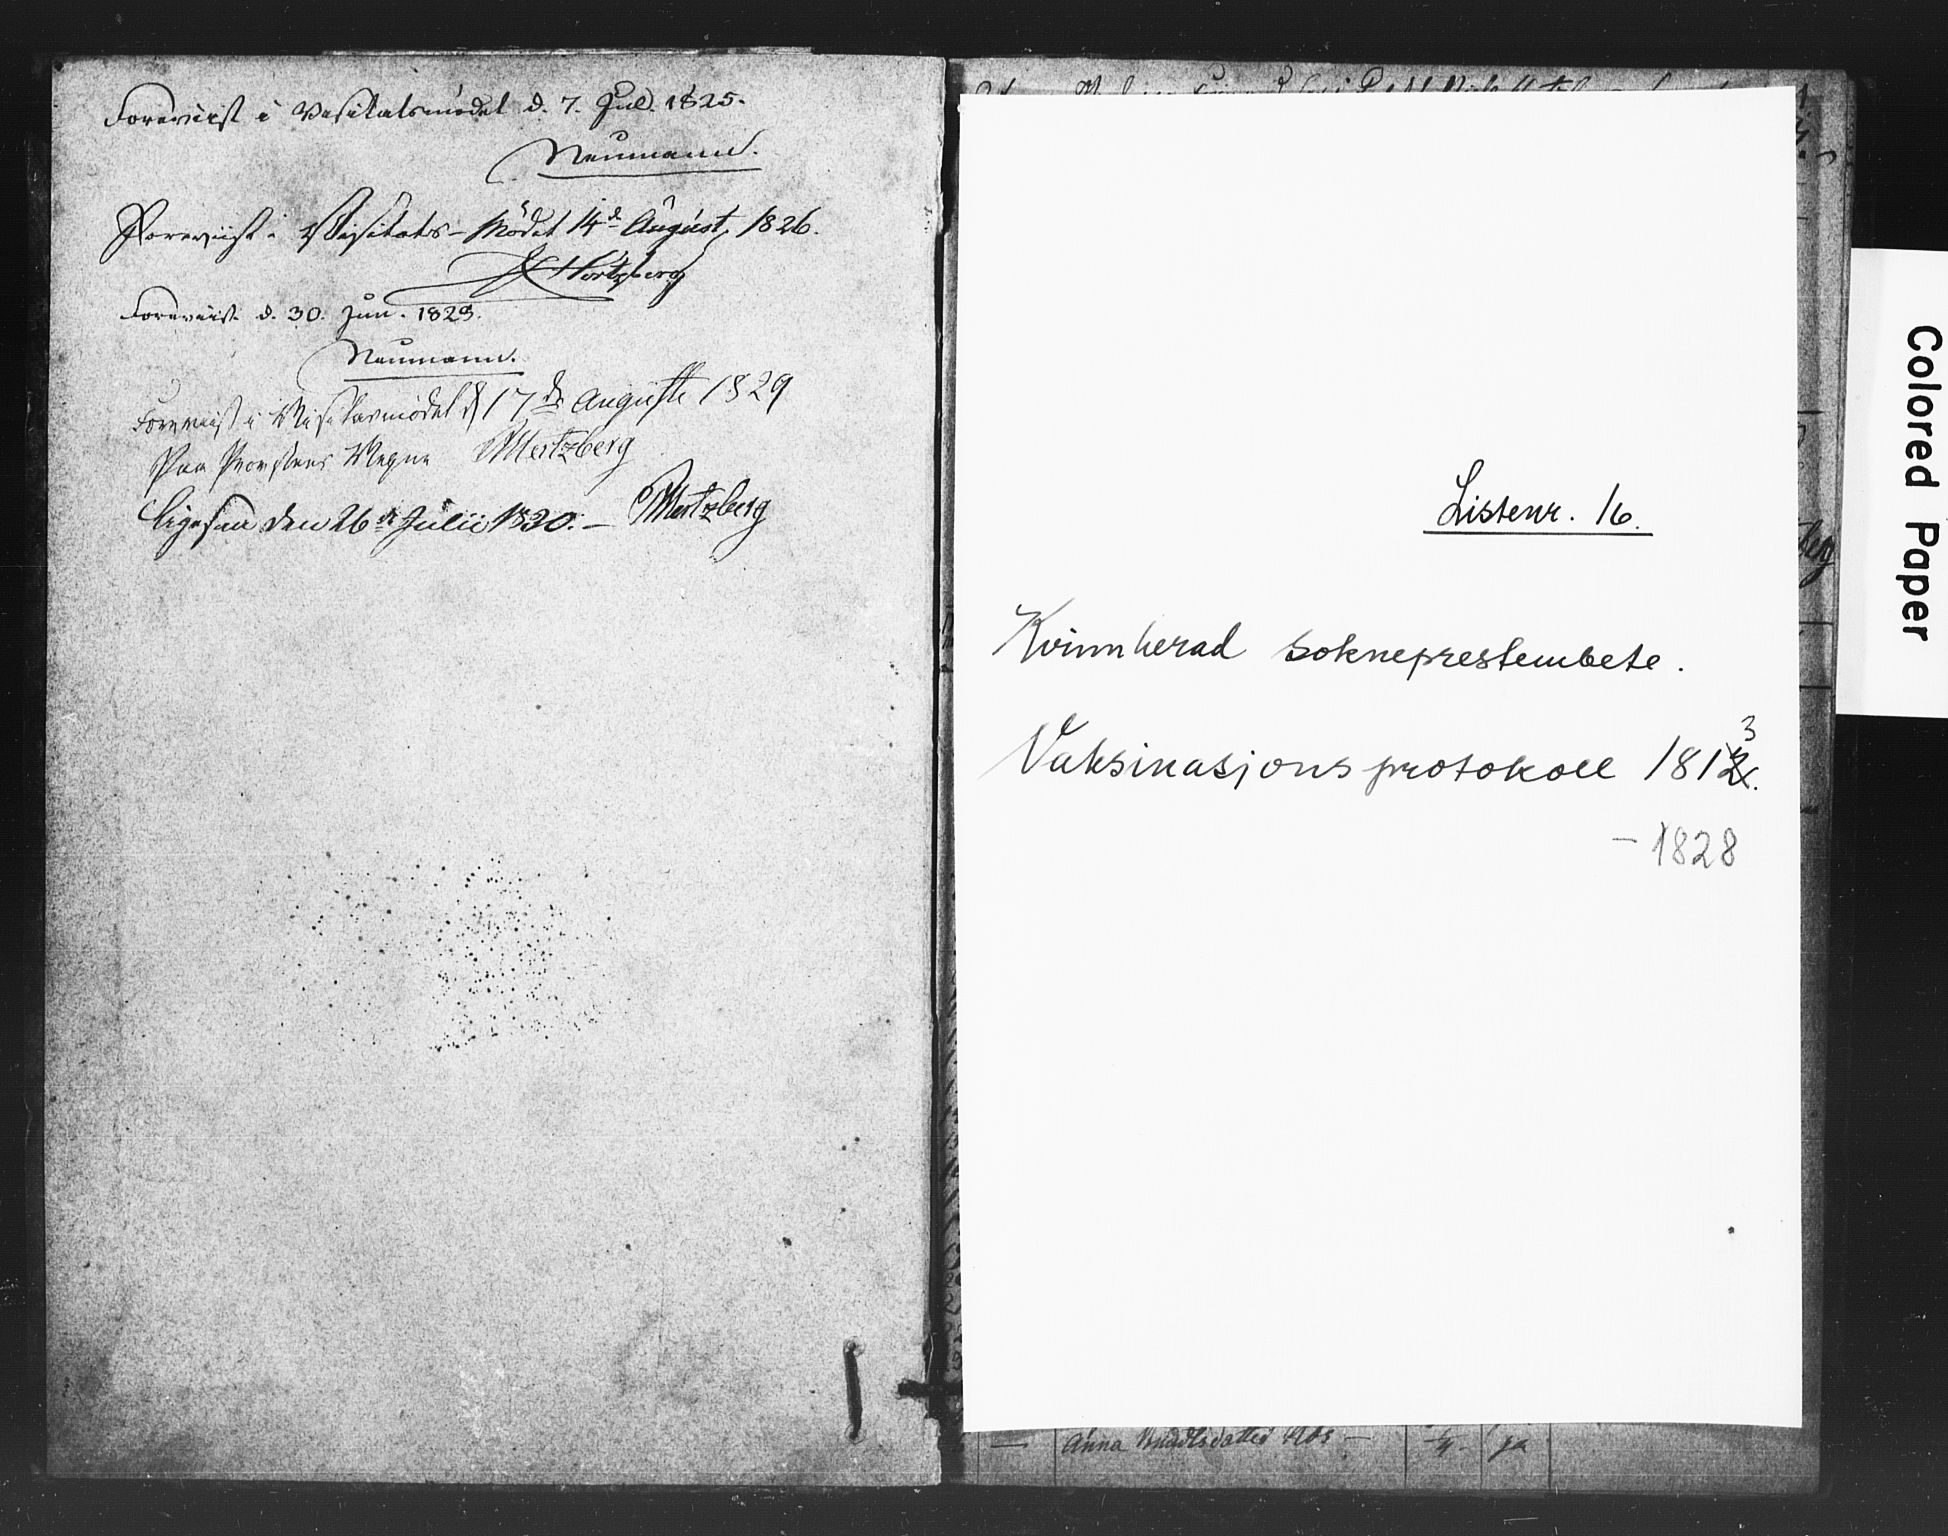 Foreviist i Visitatsmödet d. 7. Jul. 1825.
Neumann.
Foreviist i Visitats-Mödet 14d August 1826.
Hertzberg
Foreviist d. 30. Jun. 1828.
Neumann.
Foreviist i Visitasmödet d 17de Auguste 1829
Paa Provstens Vegne Hertzberg
ligesaa den 26de Julii 1830. — Hertzberg
Listenr. 16.
Kvinnherad sokneprestembete.
Vaksinasjonsprotokoll 1813.
- 1828
Anna ja
Colored Paper